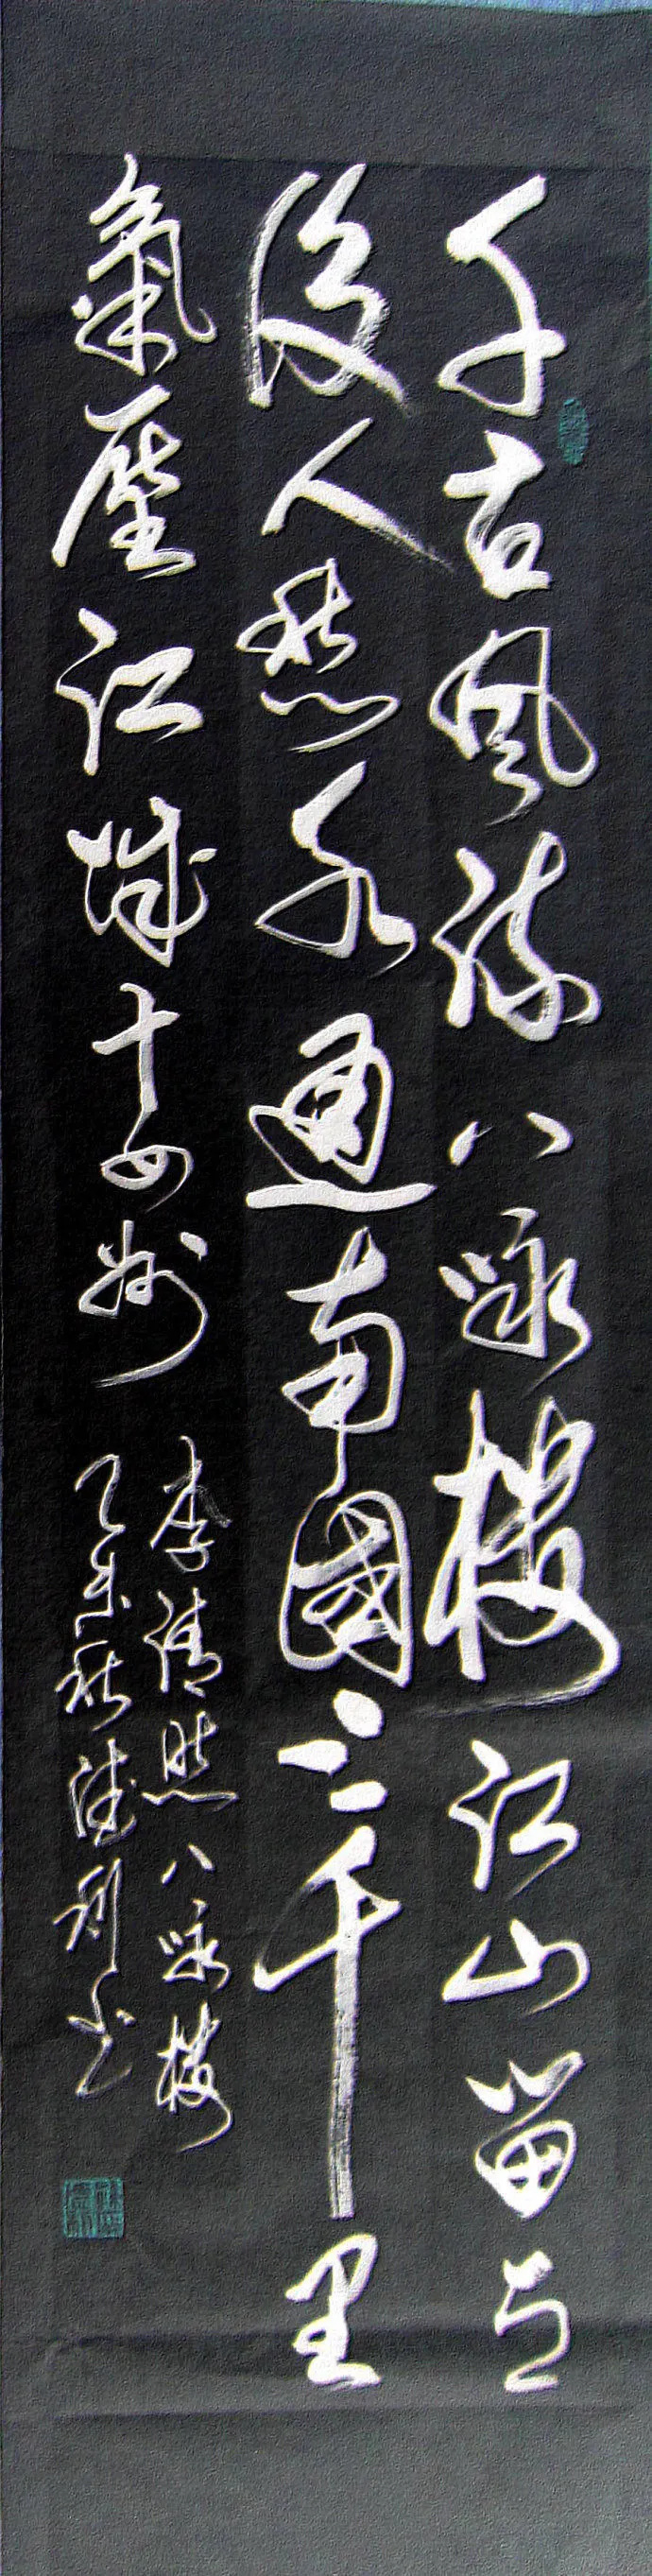 千古風流八咏樓江山留与
後人愁水通南國三千里
氣壓江城十四州
李清照八咏樓
乙未秋